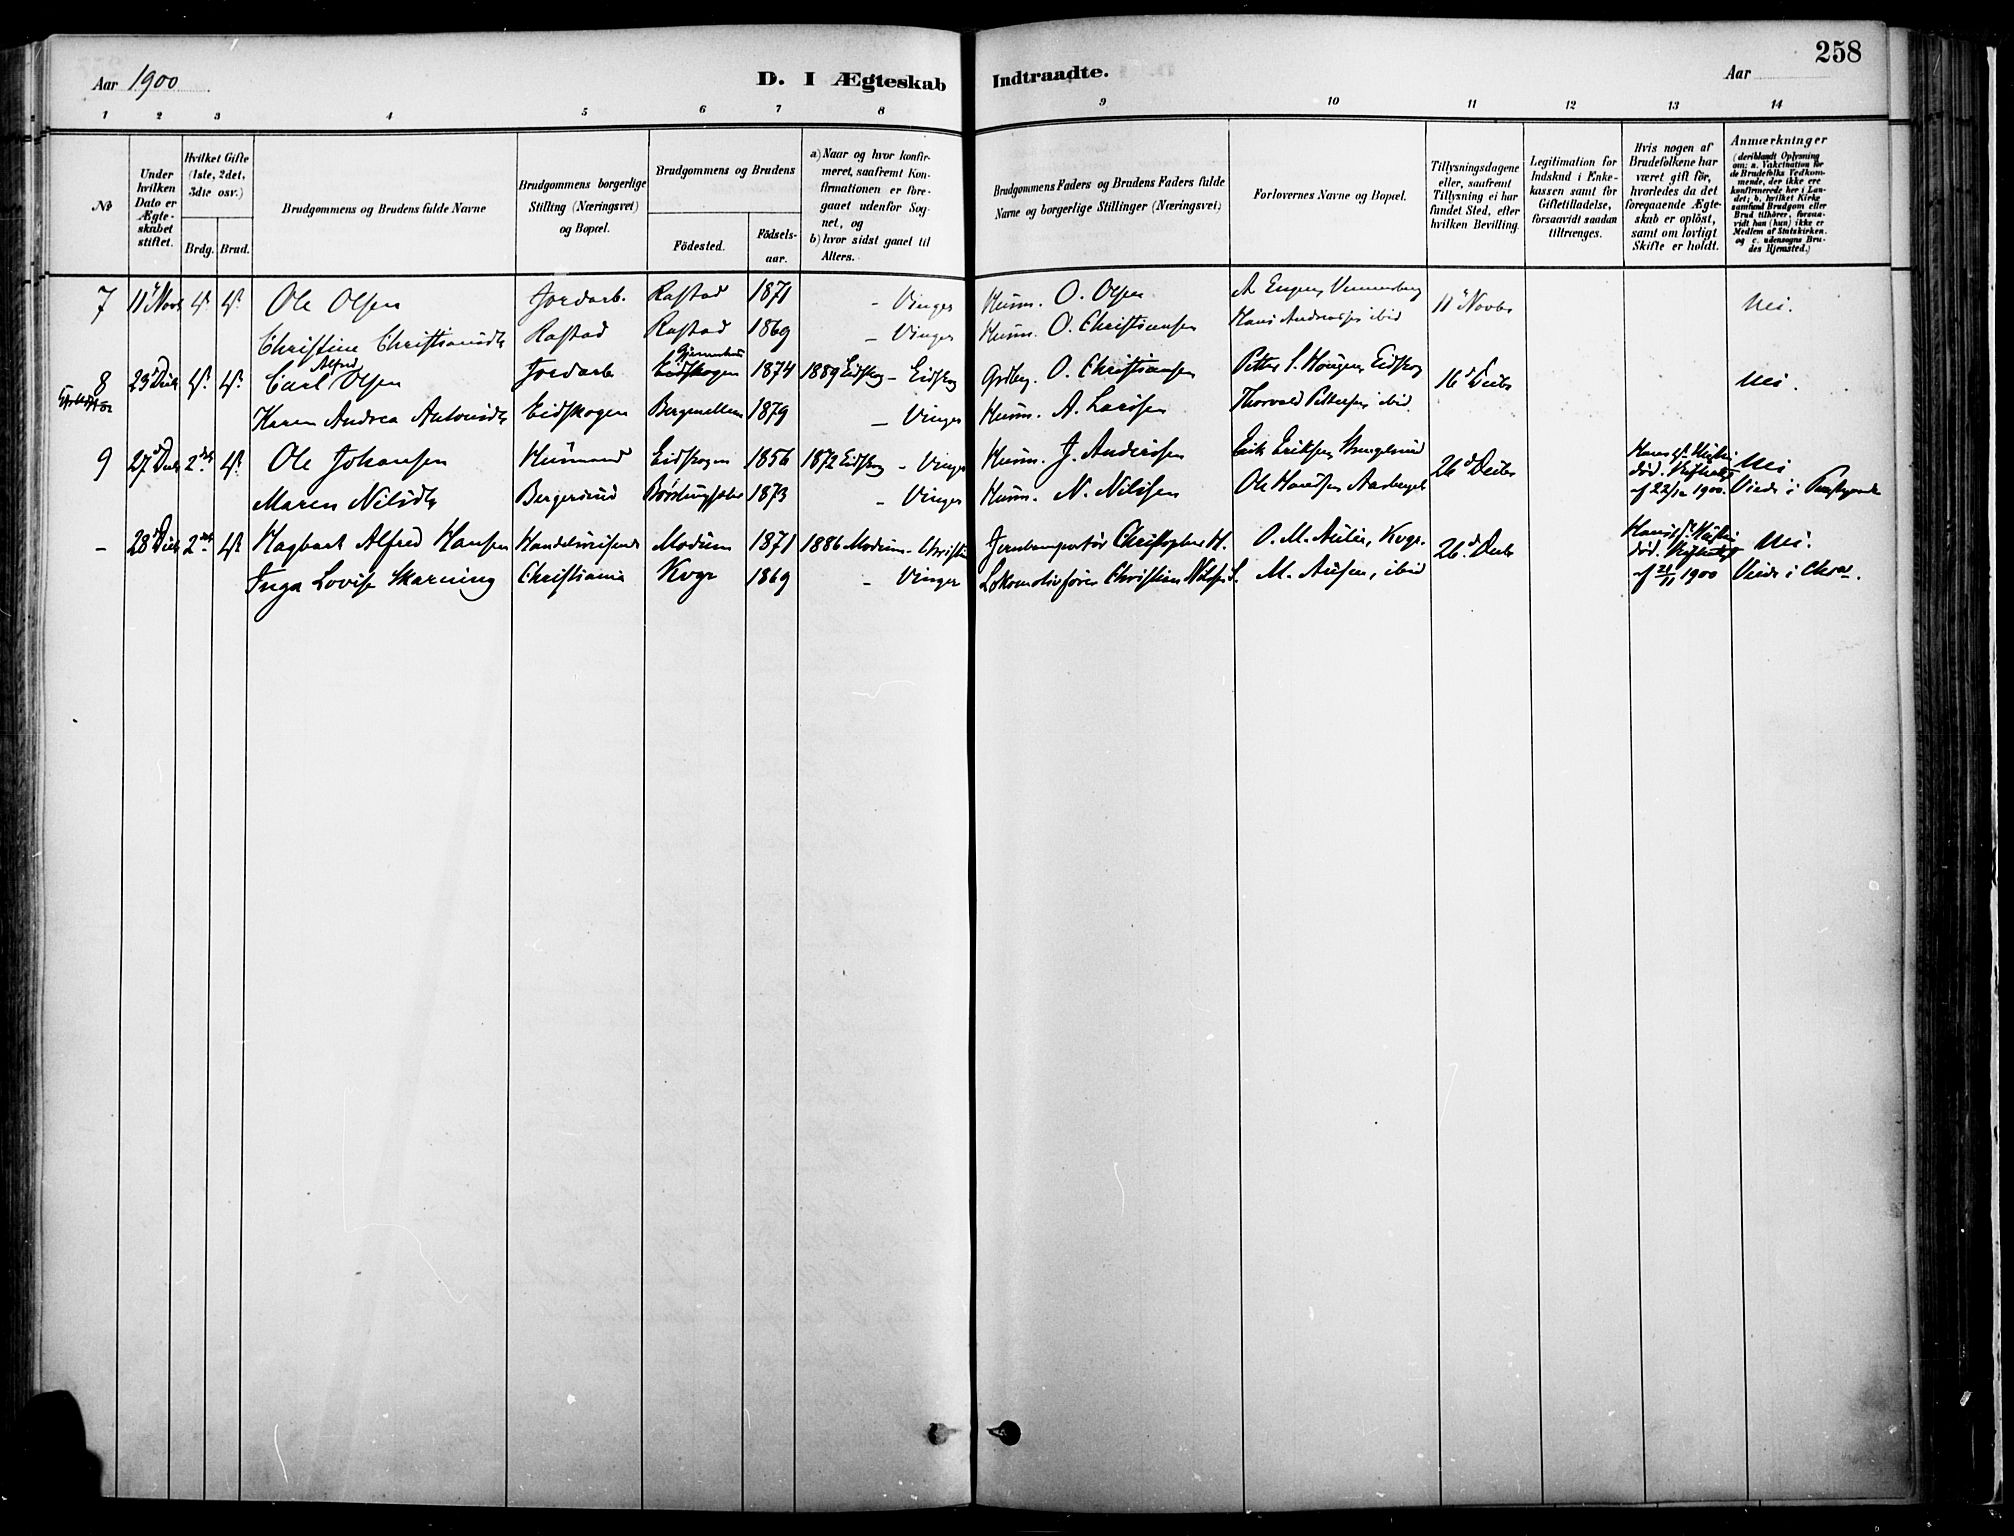 258
Aar 1900
D. I Ægteskab Indtraadte.
Aar
1 2 3 4 5 6 7 8 9 10 11 12 13 14
No
Under hvilken Dato er Ægteskabet stiftet.
Hvilket Gifte (1ste, 2det, 3die osv.)
Brdg. Brud.
Brudgommens og Brudens fulde Navne
Brudgommens borgerlige Stilling (Næringsvei) og Bopæl.
Brudgommens og Brudens
Födested.
Födselsaar.
a) Naar og hvor konfirmeret, saafremt Konfirmationen er foregaaet udenfor Sognet, og
b) hvor sidst gaaet til Alters.
Brudgommens Faders og Brudens Faders fulde Navne og borgerlige Stillinger (Næringsvei)
Forlovernes Navne og Bopæl.
Tillysningsdagene eller, saafremt Tillysning ei har fundet Sted, efter hvilken Bevilling.
Legitimation for Indskud i Enkekassen samt for Giftetilladelse, forsaavidt saadan tiltrænges.
Hvis nogen af Brudefolkene har været gift för, hvorledes da det foregaaende Ægteskab er oplöst, samt om lovligt Skifte er holdt.
Anmærkninger (deriblandt Oplysning om: a. Vakcination for de Brudefolks Vedkommende, der ikke ere konfirmerede her i Landet; b. hvilket Kirkesamfund Brudgom eller Brud tilhörer, forsaavidt han (hun) ikke er Medlem af Statskirken, og c. udensogns Brudes Hjemsted.)
7 11 Novb 1st 1st Ole Olsen Jordarb. Rastad 1871 – Vinger Husm. O. Olsen 11 Novbr Nei.
Christine Christiansdt Rastad Rastad 1869 – Vinger Husm. O. Christiansen Hans Andreasen ibid
8 23 Decb 1st 1st Carl Alfred Olsen Jordarb Eidskogen 1874 1889 Eidskog – Eidskog Grdbr. O. Christiansen Petter S. Hougen, Eidskog 16 Decbr Nei.
Karen Andrea Antonisdt Eidskogen 1879 – Vinger Husm. A. Larsen Thorvald Pettersen ibid
9 27 Decb 2det 1st Ole Johansen Husmand Eidskogen 1856 1872 Eidskog – Vinger Husm. J. Andersen Erik Eriksen 26 Decbr Nei
Maren Nilsdt Bergersrud 1873 – Vinger Husm. N. Nilsen Ole Hansen død. af 22/12 1900. Viede i
– 28 Decb 2det 1st Hagbart Alfred Hansen Handelsreisende Modum 1871 1886 Modum – Christopher H. O. M. Kvgr. 26 Decb Nei.
Inga Lovise Skarning Christiania Kvgr 1869 – Vinger Lokomotivfører Christian Nilsen S. M. ibid død. af 21/11 1900 Viede i Chra.